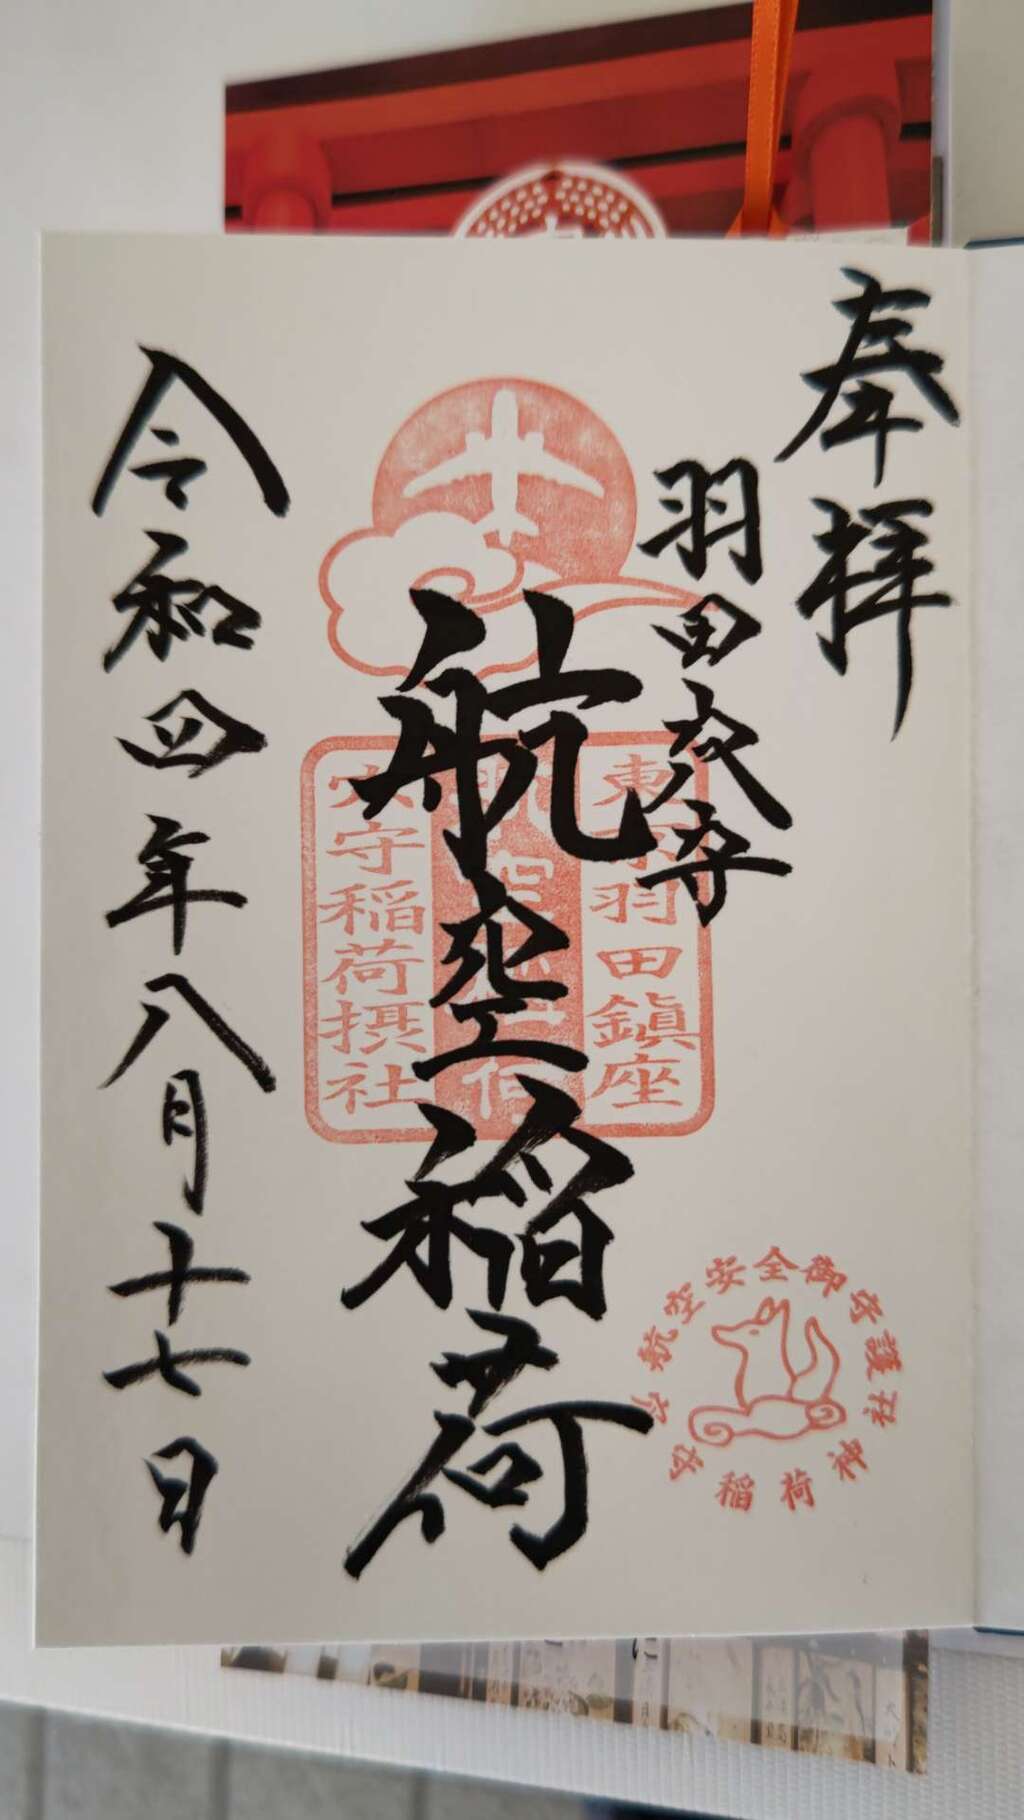 奉拝
羽田穴守
航空稲荷
令和四年八月十七日
羽田鎮座
穴守稲荷摂社
航空安全御守護
穴守稲荷神社